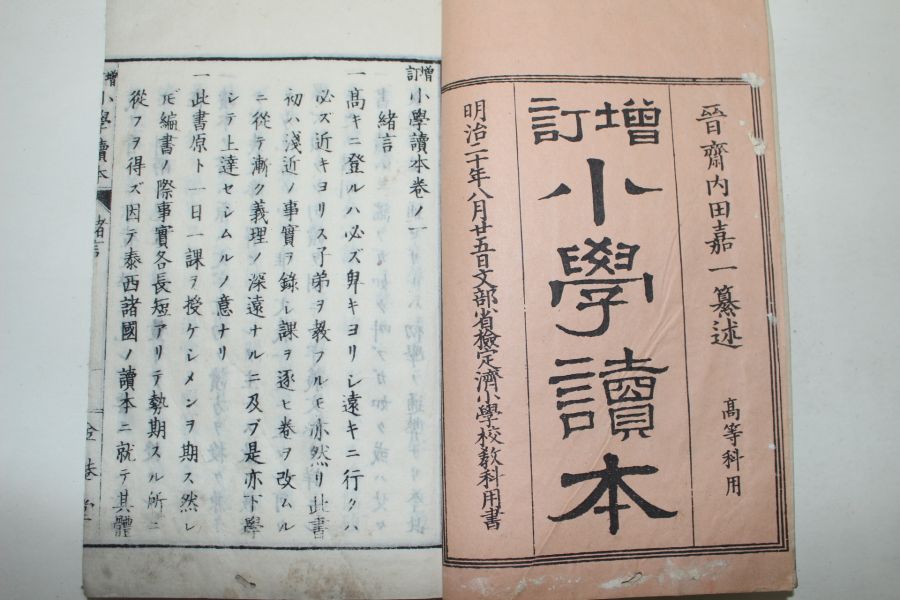 晉齋內田嘉一纂述
高等科用
增訂
小學讀本
明治二十年八月廿五日文部省檢定濟小學校教科用書
增訂小學讀本卷ノ一
緒言
一高キニ登ルハ必ズ卑キヨリシ遠キニ行クハ
必ズ近キヨリス子弟ヲ教フルモ亦然リ此書
初ハ淺近ノ事實ヲ錄シ課ヲ逐ヒ卷ヲ改ムル
ニ從テ漸ク義理ノ深遠ナルニ及ブ是亦下學
シテ上達セシムルノ意ナリ
一此書原ト一日一課ヲ授ケシメンヲ期ス然レ
𪜈編書ノ際事實各長短アリテ勢期スル所ニ
從フヲ得ズ因テ泰西諸國ノ讀本ニ就テ其體
增訂小學讀本
緒言